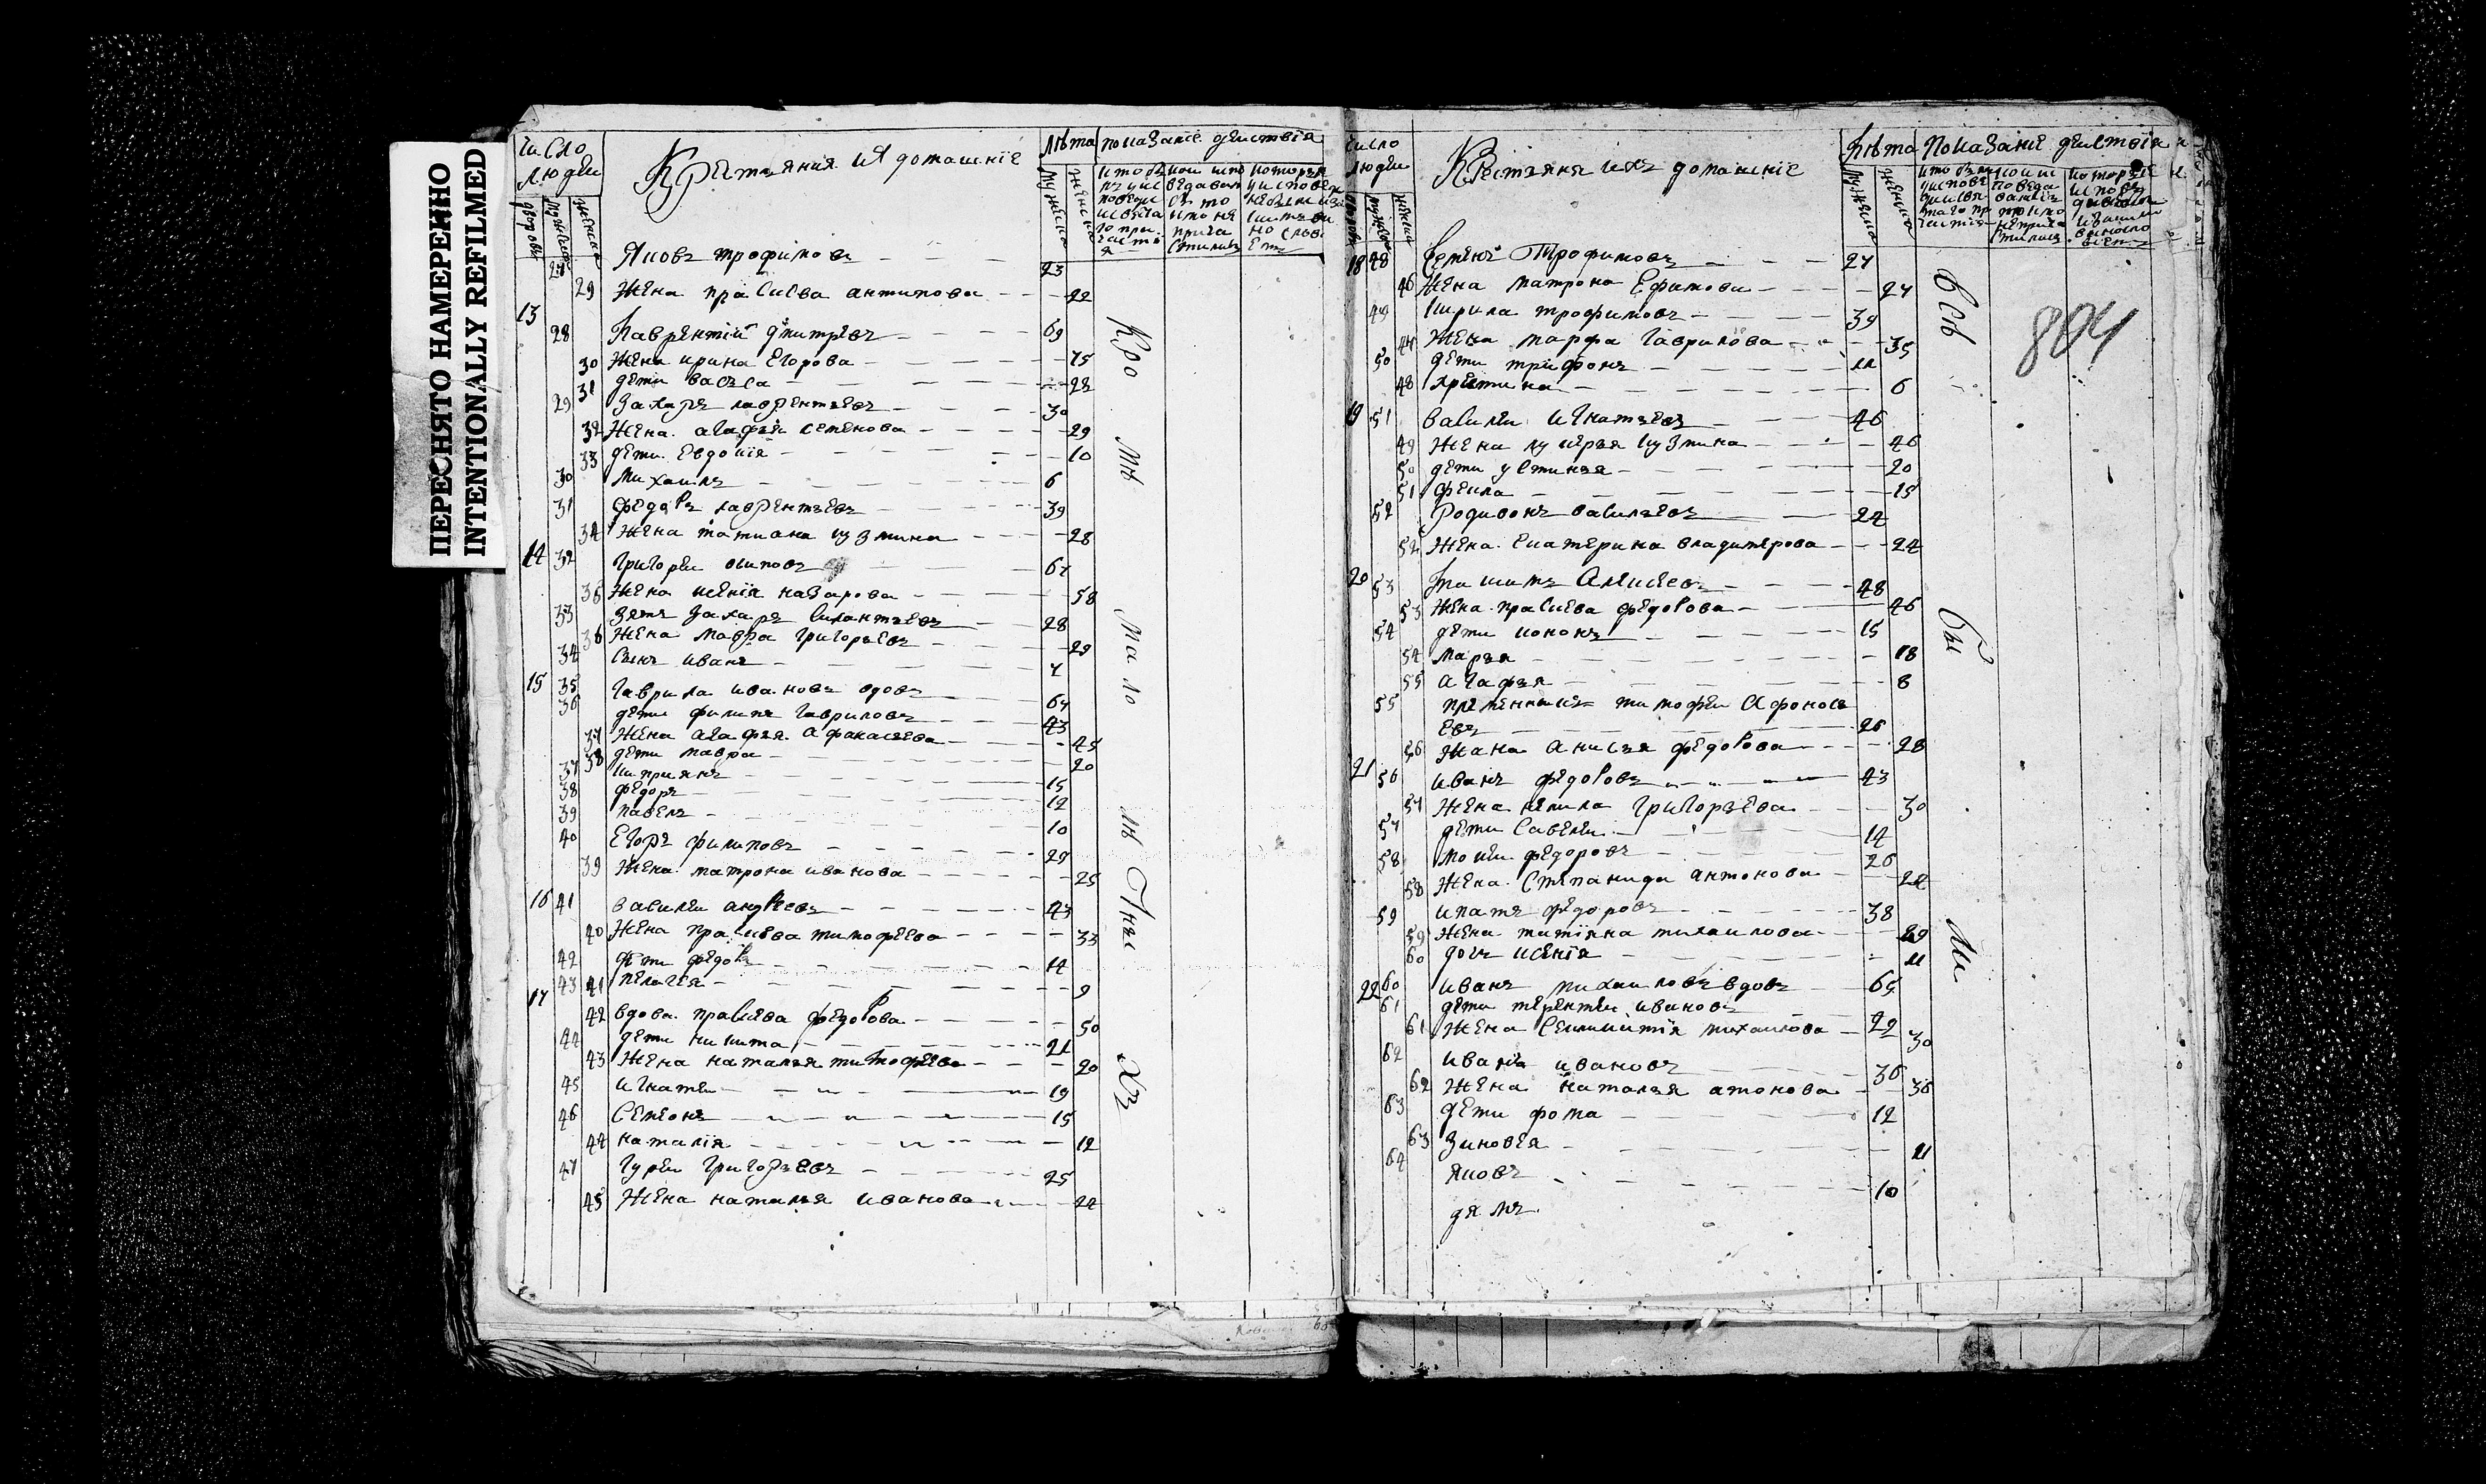 ПЕРЕСНЯТО НАМЕРЕННО
INTENTIONALLY REFILMED
число людей
Крестьяния их домашніе
лѣта
показаніе действія
27 Яковъ трофимовъ 23
29 Жена праскева антипова 22
13 28 Лаврентій дмитревъ 69
30 Жена ирина Егорова 75
31 дети васса 22
29 Захаръ лаврентьевъ 30
32 Жена агафья семенова 29
33 дети Евдокія 10
30 михаилъ 6
31 федоръ лаврентьевъ 39
34 Жена татиана кузмина 28
14 32 Григорей осиповъ 67
35 Жена ксенія назарова 58
33 зять Захаръ силантьевъ 28
36 Жена мавра григорьевъ 29
34 Сынъ иванъ 7
15 35 Гаврила ивановъ вдовъ 67
36 дети филипъ гавриловъ 43
37 Жена агафья афанасьева 45
38 дети мавра 20
37 киприянъ 15
38 федоръ 12
39 павелъ 10
40 Егоръ филиповъ 29
39 Жена матрона иванова 25
16 41 василей андреевъ 43
40 Жена праскева тимофеева 33
42 дети федоръ 14
43 41 пелагея 9
17 42 вдова праскева федорова 50
44 дети никита 21
43 Жена наталья тимофеева 20
45 игнатей 19
46 Семенъ 15
44 наталія 12
47 гурей григорьевъ 25
45 Жена наталья иванова 24
Кро мѣ мало лѣтныхъ
число людей
Крестьяня ихъ домашніе
лѣта
показаніе действія
18 48 Семенъ Трофимовъ 27
46 Жена матрона Ефимова 27
49 кирила трофимовъ 39
47 Жена марфа гаврилова 35
50 дети трифонъ 11
48 христина 6
19 51 василей игнатьевъ 46
49 Жена лукерья кузмина 46
50 дети устинья 20
51 фекла 15
52 Родивонъ васильевъ 24
52 Жена Екатерина владимерова 24
20 53 Алексеевъ 48
53 Жена праскева федорова 46
54 дети кононъ 15
54 марья 18
55 агафья 8
55 тимофей Афонась
евъ 26
56 Жана анисья федорова 28
21 56 иванъ федоровъ 43
57 Жена ненила григорьева 30
57 дети савелей 14
58 мокей федоровъ 26
58 Жена Степанида антонова 22
59 ипатъ федоровъ 38
59 Жена татіяна михаилова 29
60 дочь ксенія 11
22 60 иванъ михаиловъ вдовъ 65
61 дети терентей ивановъ 29
61 Жена михаилова 30
62 иванъ ивановъ 36
62 Жена наталья атонова 36
63 дети фома 12
63 Зиновея 11
64 Яковъ 10
дямъ
всѣ были
804